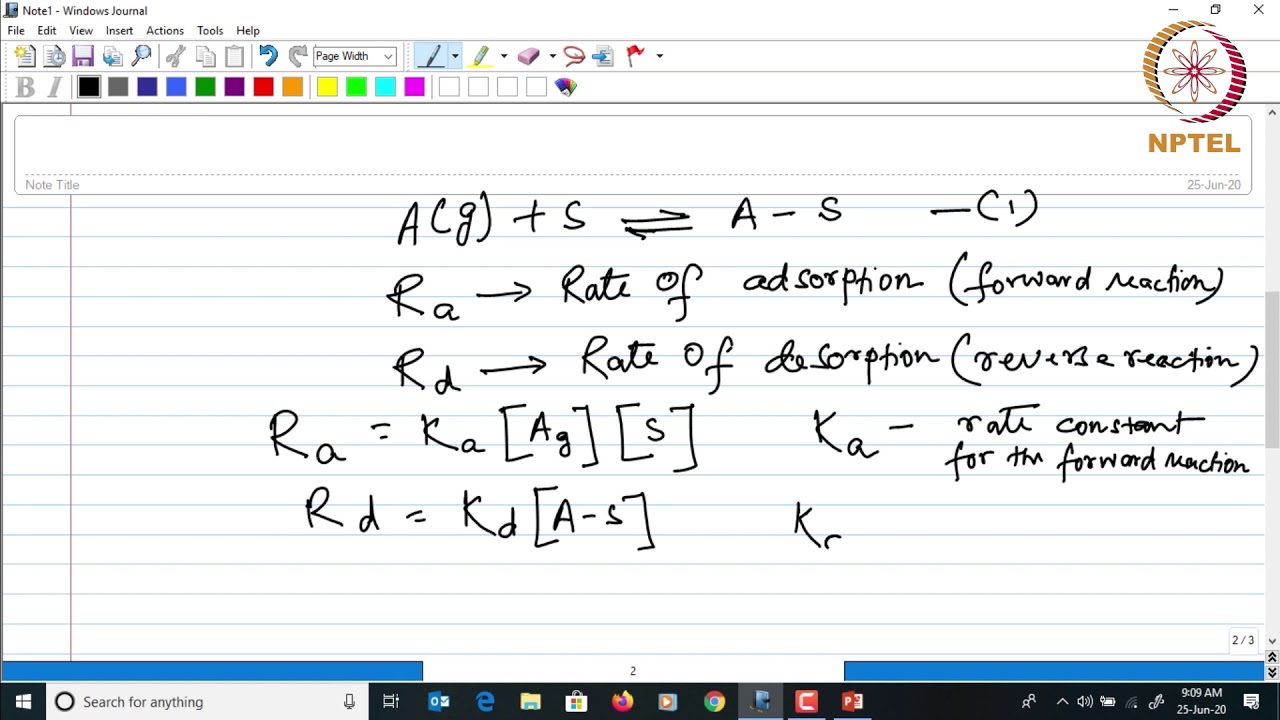 Note1 - Windows Journal
File Edit View Insert Actions Tools Help
Page Width
B I
NPTEL
Note Title
25-Jun-20
A(g) + S ⇌ A - S —(1)
Ra → Rate of adsorption (forward reaction)
Rd → Rate of desorption (reverse reaction)
Ra = Ka [Ag] [S] Ka - rate constant
for the forward reaction
Rd = Kd [A-S] Kr
2 / 3
2
Search for anything
9:09 AM
25-Jun-20